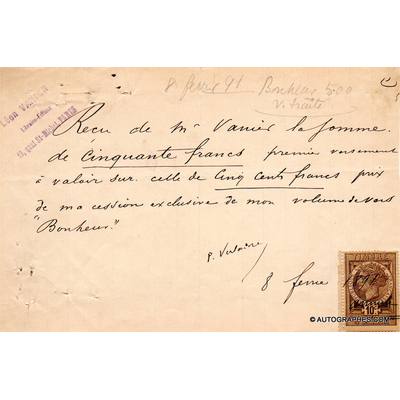 8 fevrier 91 Bonheur 500
v. traité
Léon VANIER
19, Quai St-Michel, PARIS
Reçu de Mr Vanier la somme
de Cinquante francs premier versement
à valoir sur celle de Cinq Cents francs prix
de ma cession exclusive de mon volume de vers
"Bonheur."
P. Verlaine
8 fevrier 1891
TIMBRE
10
© AUTOGRAPHES.COM